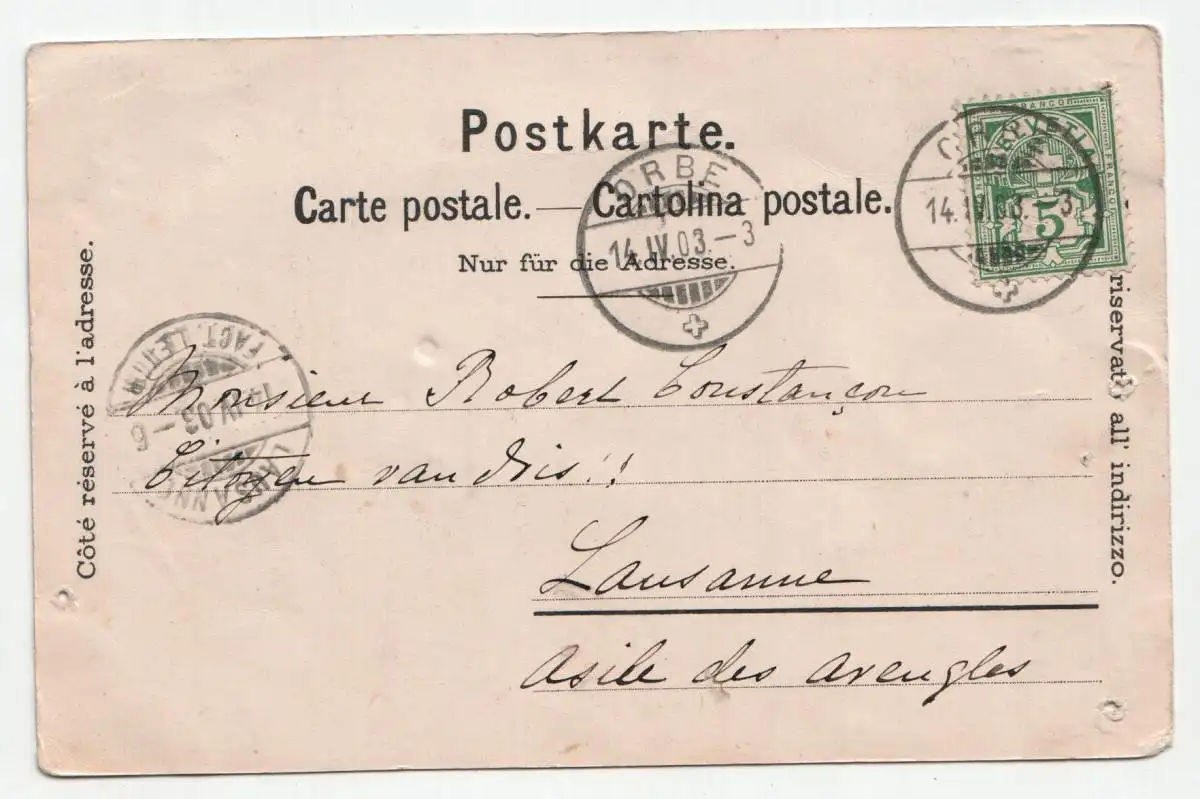 Postkarte.
Carte postale. — Cartolina postale.
Nur für die Adresse.
Côté réservé à l'adresse.
riservato all' indirizzo.
FRANCO
FRANCO
5
14.IV.03.-3
ORBE
14.IV.03.-3
LAUSANNE
14.IV.03.-6
FACT. LETTR.
Monsieur Robert Constançon
Citoyen vaudois!!
Lausanne
Asile des aveugles